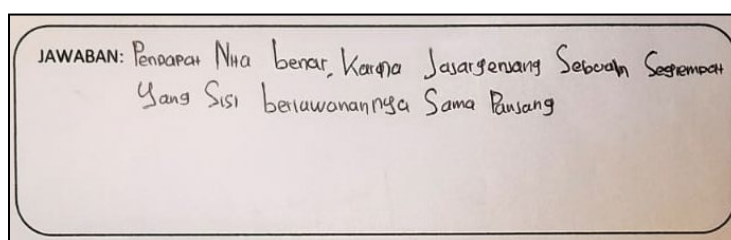 JAWABAN: Pendapat Nita benar, Karena Jajargenjang Sebuah Segiempat
Yang Sisi berlawanannya Sama Panjang